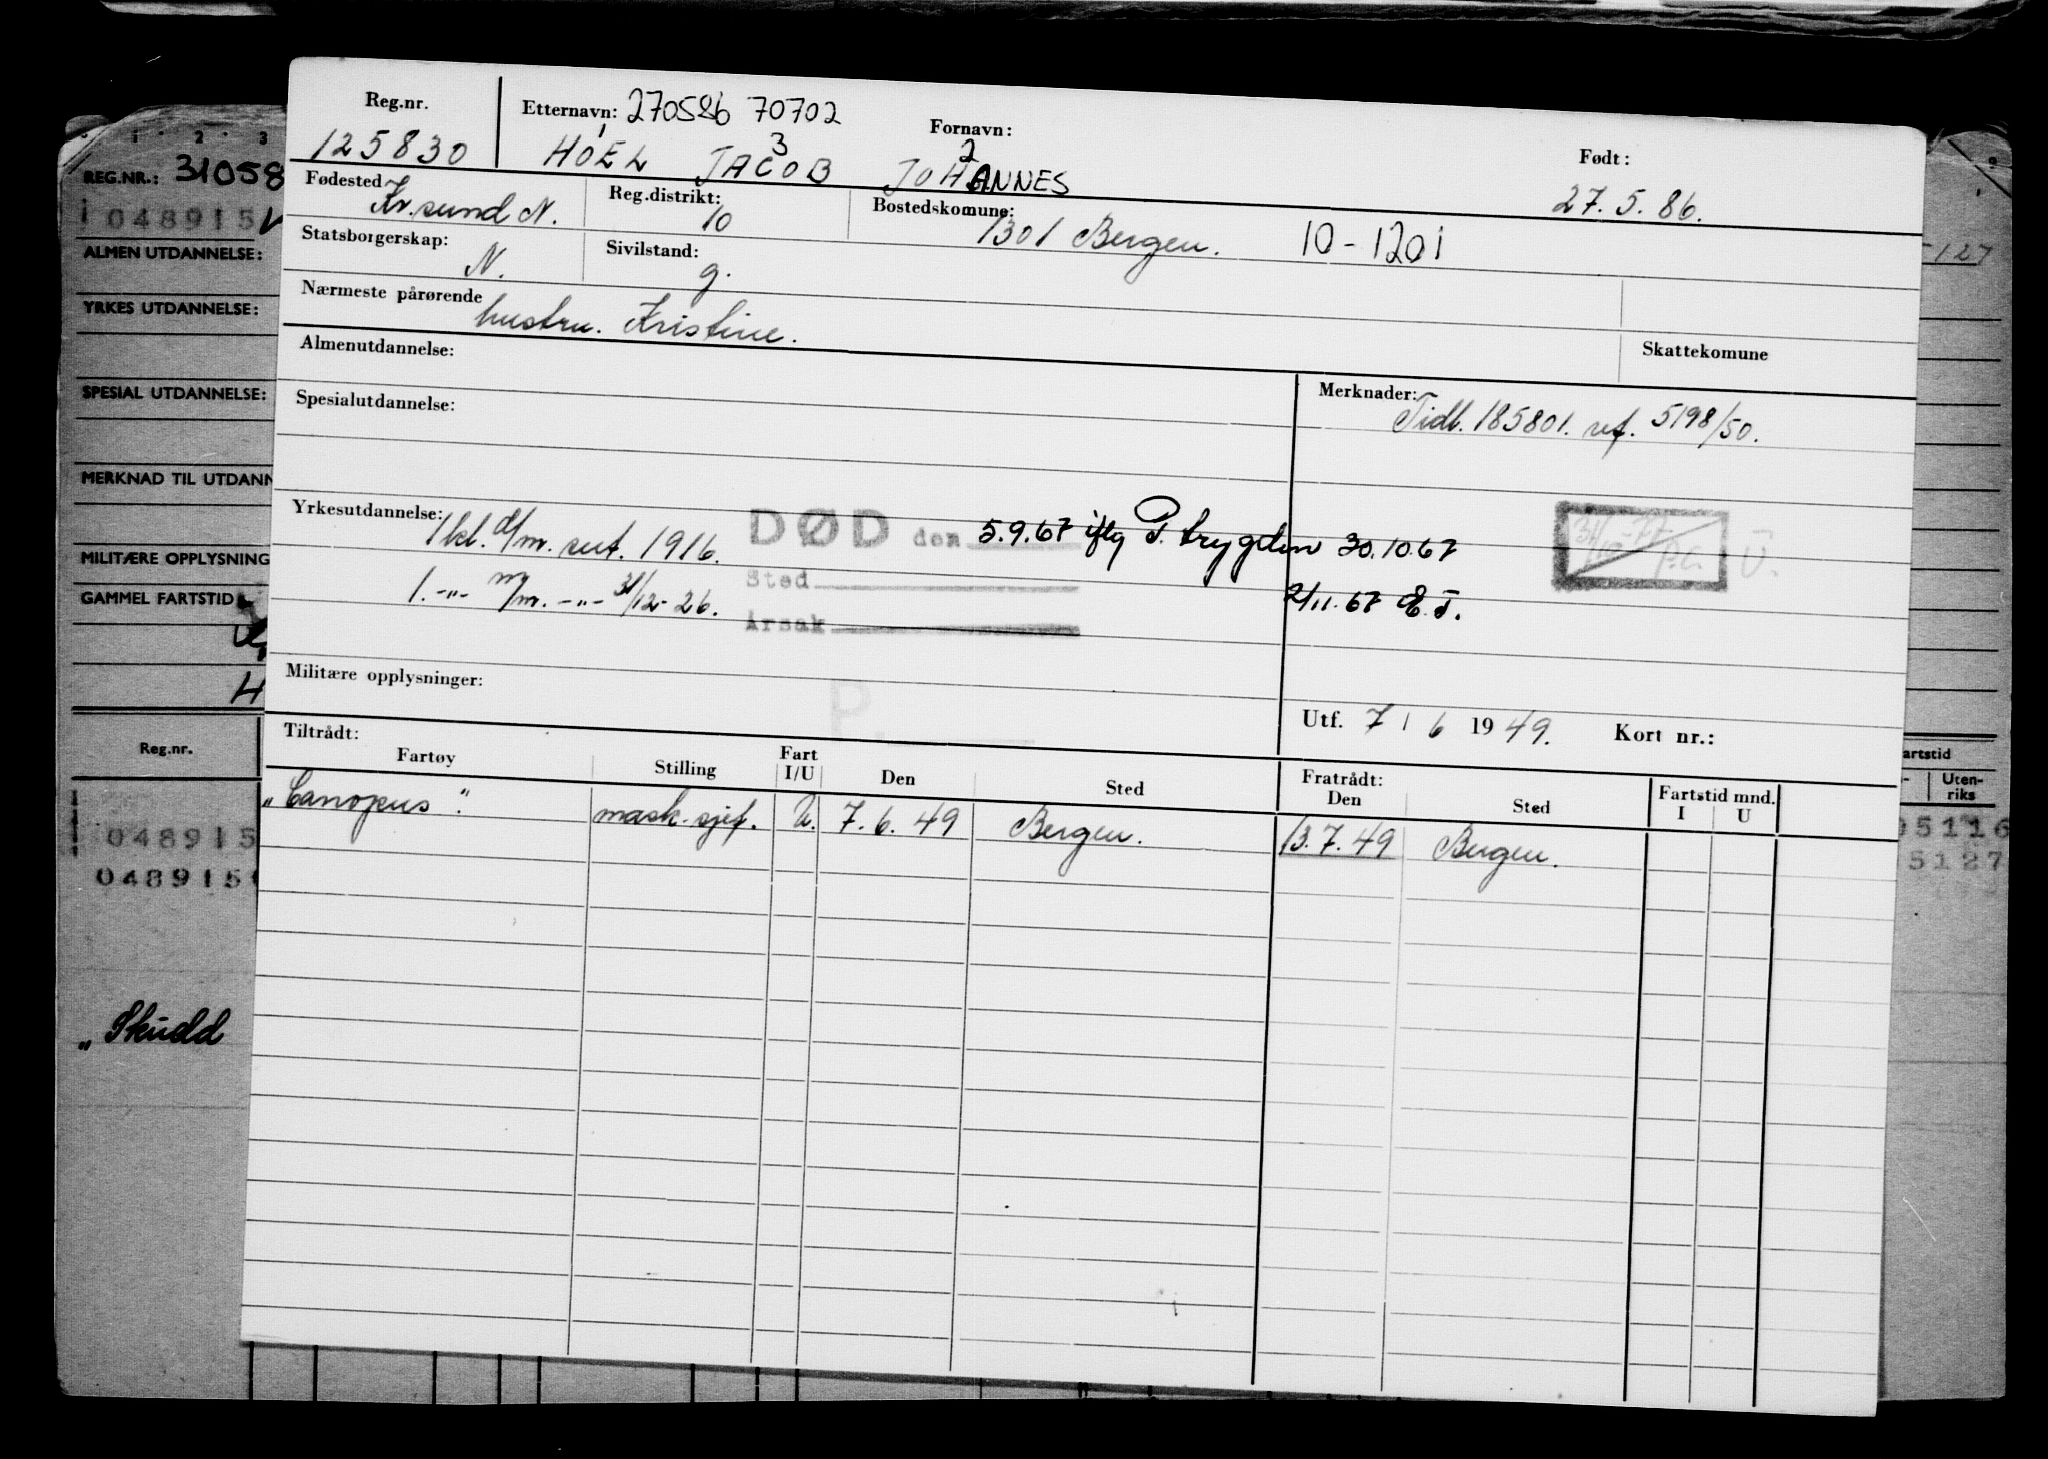 Reg.nr. Etternavn: 270586 70702 Fornavn: Født:
125830 HOEL 1 JACOB 3 JOHANNES 2 27.5.86.
Fødested Kr.sund N. Reg.distrikt: 10 Bostedskommune: 1301 Bergen. 10-1201
Statsborgerskap: N. Sivilstand: g.
Nærmeste pårørende hustru. Kristine.
Skattekomune
Almenutdannelse:
Merknader: Tidl. 185801. ref. 5198/50.
Spesialutdannelse:
Yrkesutdannelse: 1kl. d/m. sert. 1916. DØD den 5.9.67 iflg P. trygden 30.10.67
1. -"- m/m. -"- 31/12-26. Sted 2/11.67 E.T.
Årsak
Militære opplysninger:
P.
Utf. 7 / 6 1949. Kort nr.:
Tiltrådt: Fratrådt:
Fartøy Stilling Fart I/U Den Sted Den Sted Fartstid mnd. I U
"Canopus". mask.sjef. U. 7.6.49 Bergen. 13.7.49 Bergen.
1 2 3
REG.NR.: 31058
048915
ALMEN UTDANNELSE:
YRKES UTDANNELSE:
SPESIAL UTDANNELSE:
MERKNAD TIL UTDANN
MILITÆRE OPPLYSNING
GAMMEL FARTSTID
H
Reg.nr.
048915
048915
"Skudd
127
artstid
Uten-
riks
05116
5127